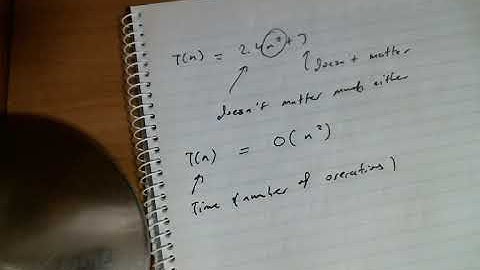 T(n) = 2.4n²+3
doesn't matter
doesn't matter much either
T(n) = O(n²)
Time (number of operations)